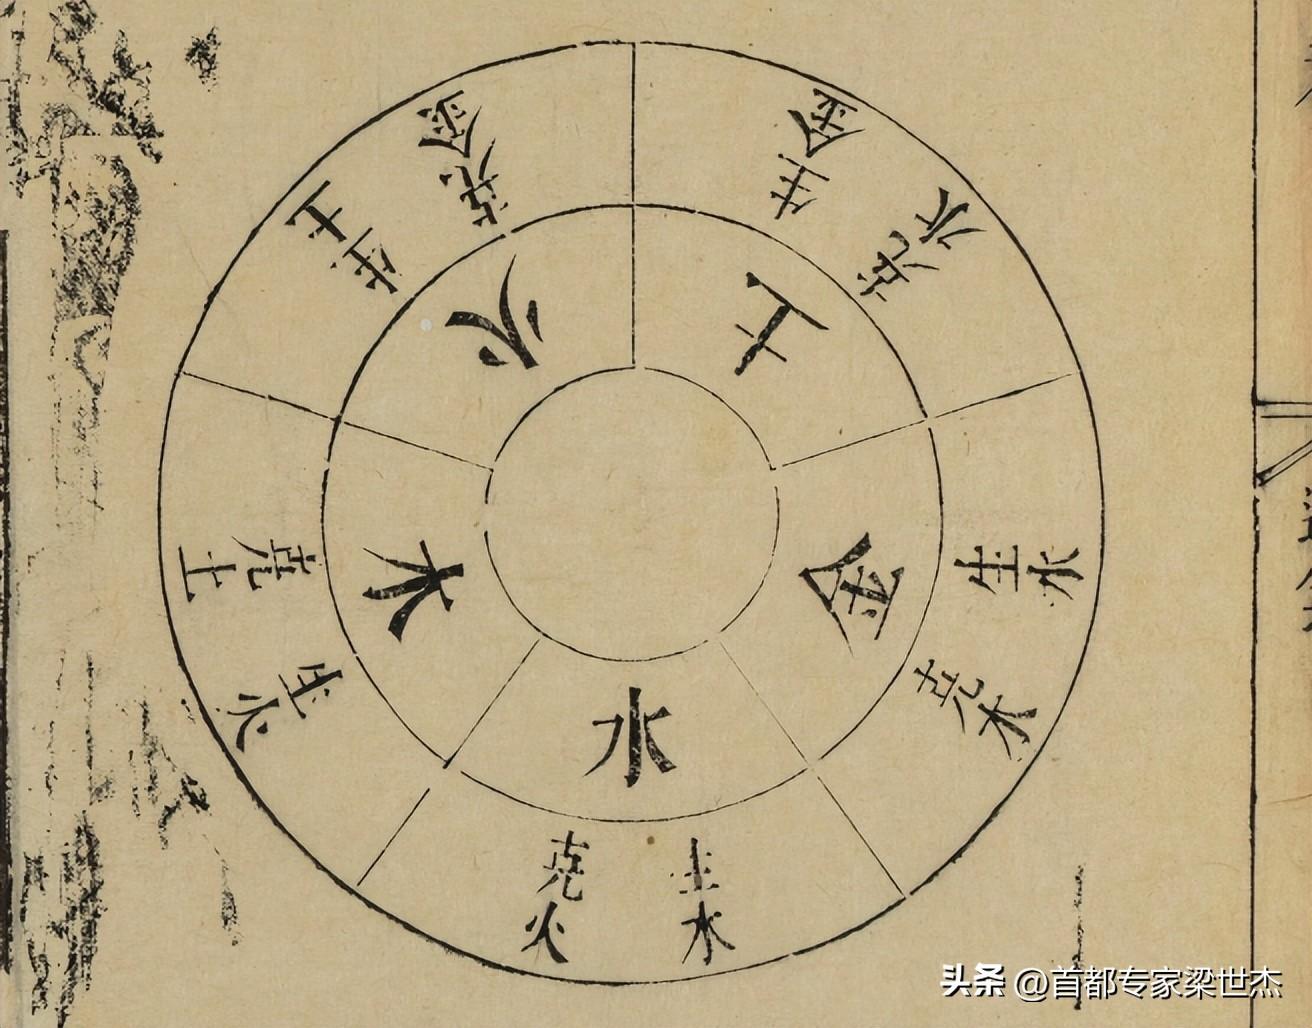 土
生金
克水
金
生水
克木
水
生木
克火
木
生火
克土
火
生土
克金
头条 @首都专家梁世杰